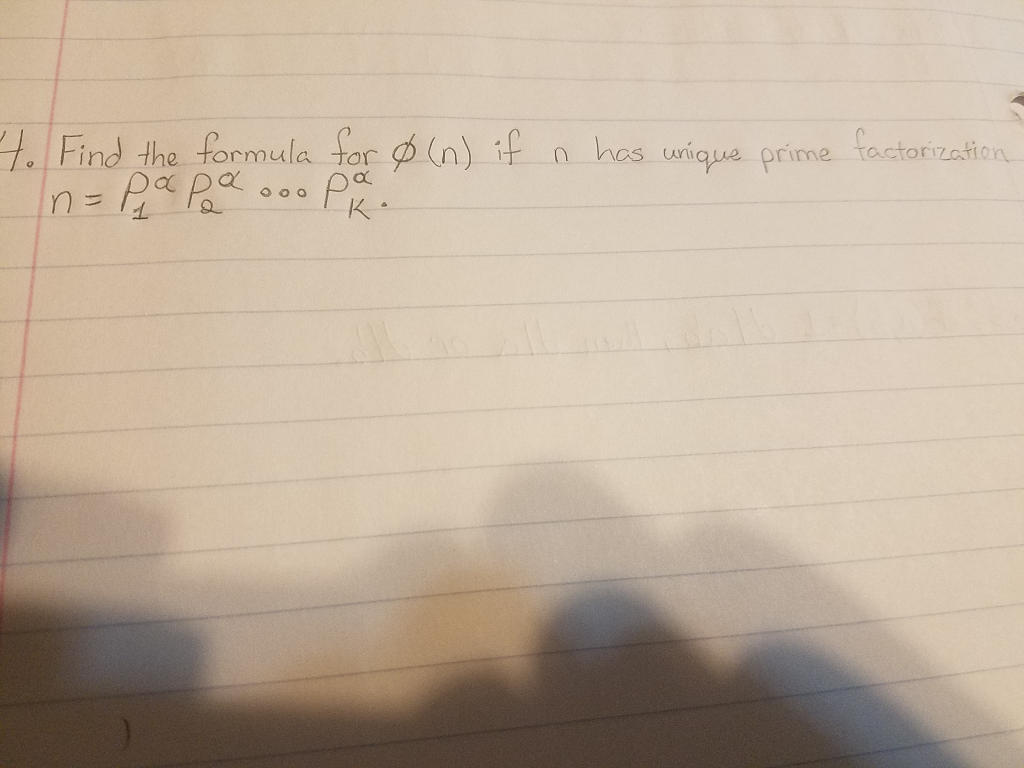 4. Find the formula for ϕ(n) if n has unique prime factorization
n = P₁^α P₂^α ∘∘∘ P_K^α.